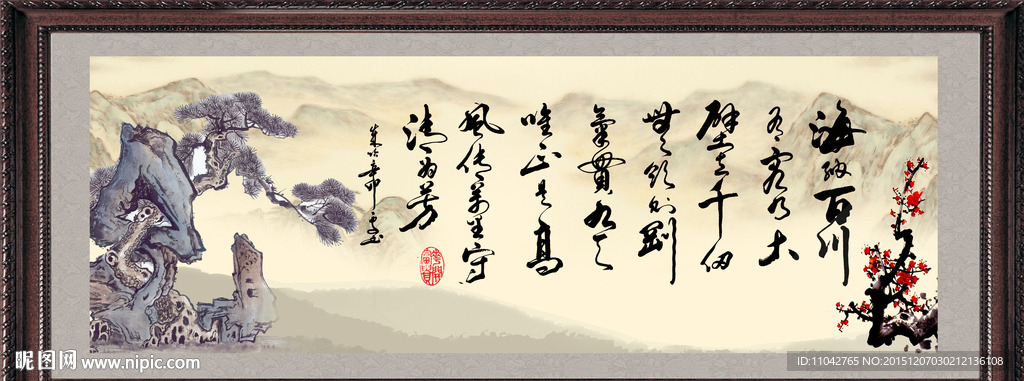 海納百川
有容乃大
壁立千仞
無欲則剛
氣貫九天
唯正是高
風傳萬里守
清為芳
昵图网 www.nipic.com
ID:11042765 NO:20151207030212136108